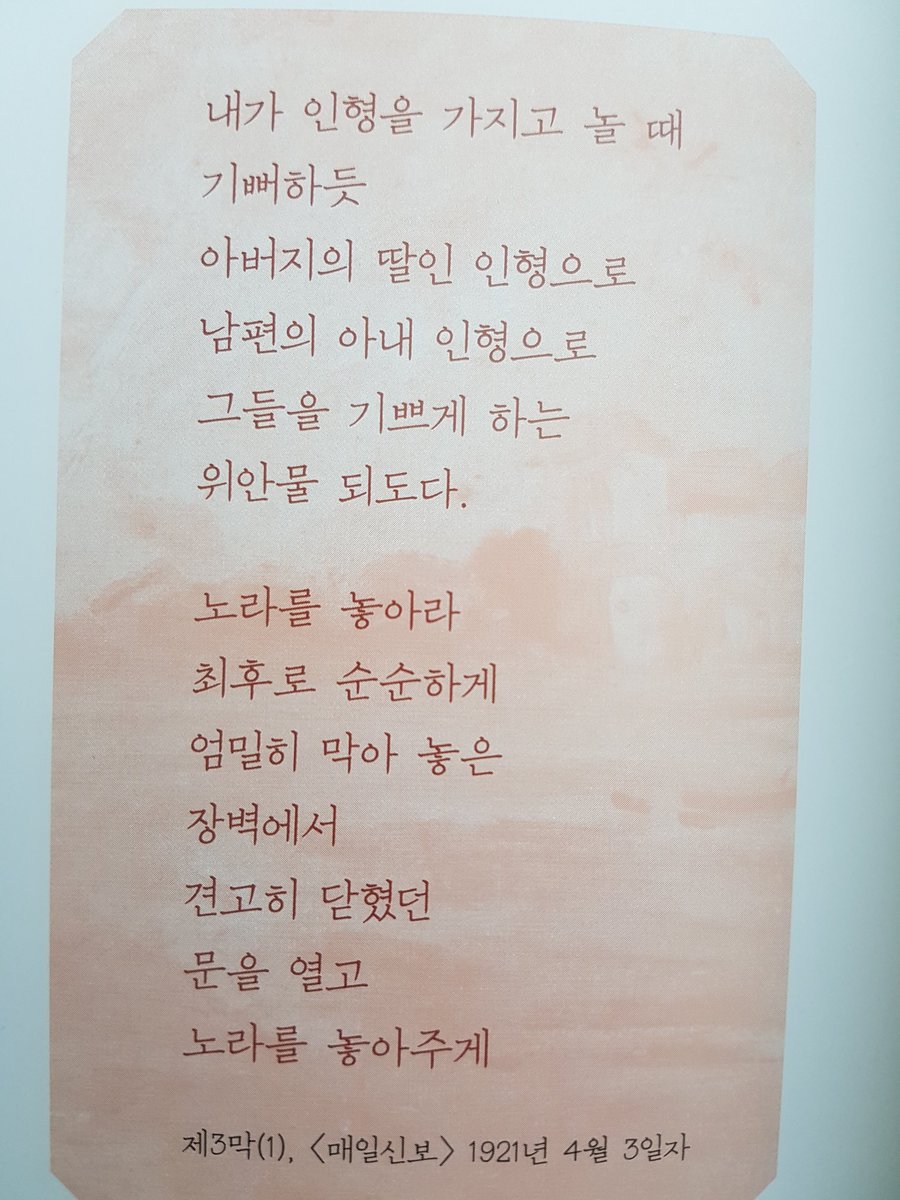 내가 인형을 가지고 놀 때
기뻐하듯
아버지의 딸인 인형으로
남편의 아내 인형으로
그들을 기쁘게 하는
위안물 되도다.
노라를 놓아라
최후로 순순하게
엄밀히 막아 놓은
장벽에서
견고히 닫혔던
문을 열고
노라를 놓아주게
제3막(1), 〈매일신보〉 1921년 4월 3일자